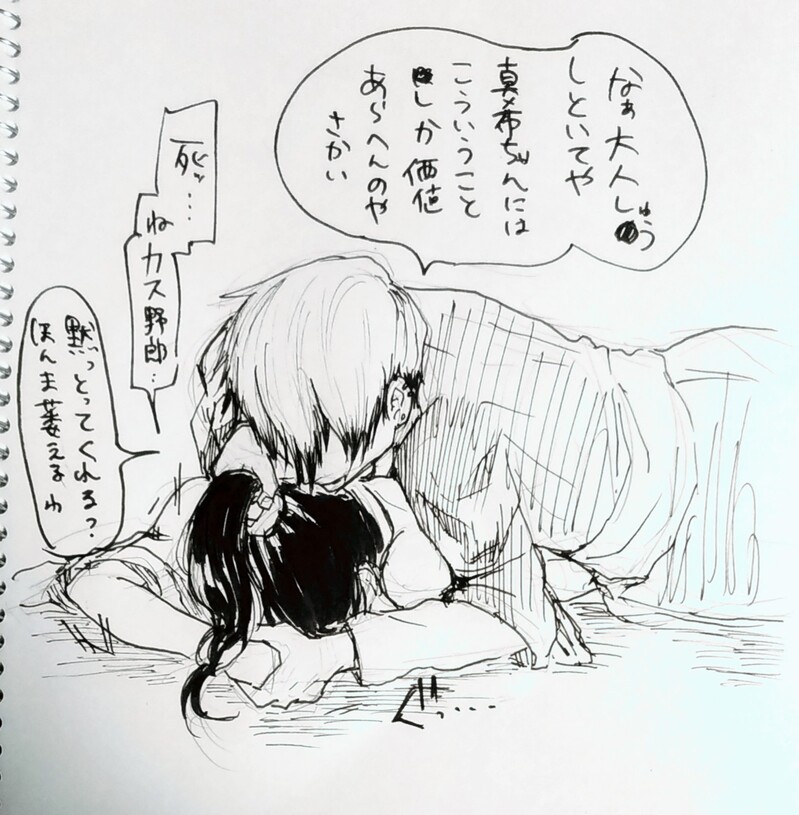 なぁ大人しゅう
しといてや
真希ちゃんには
こういうこと
しか価値
あらへんのや
さかい
死ッ…
ねカス野郎…
黙っとってくれる?
ほんま萎えるわ
ぐっ…